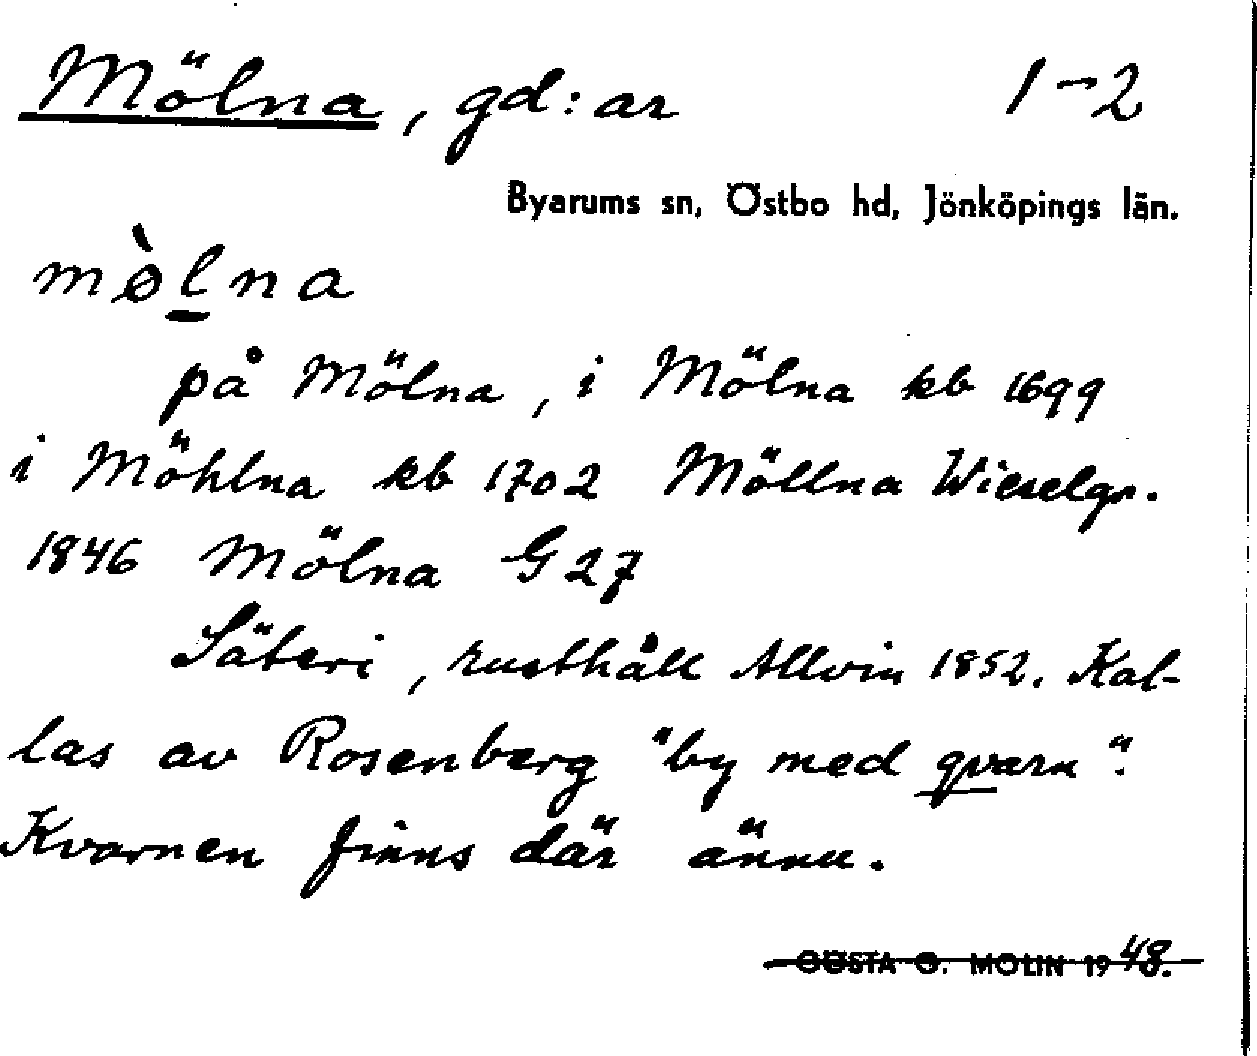 Mölna, gd:ar 1-2
Byarums sn, Östbo hd, Jönköpings län.
mø̀lna
på Mölna, i Mölna kb 1699
i Möhlna kb 1702 Möllna Wieselgr.
1846 Mölna G 27
Säteri, rusthåll Allvin 1852. Kal-
las av Rosenberg "by med qvarn".
Kvarnen finns där ännu.
GÖSTA O. MOLIN 1948.